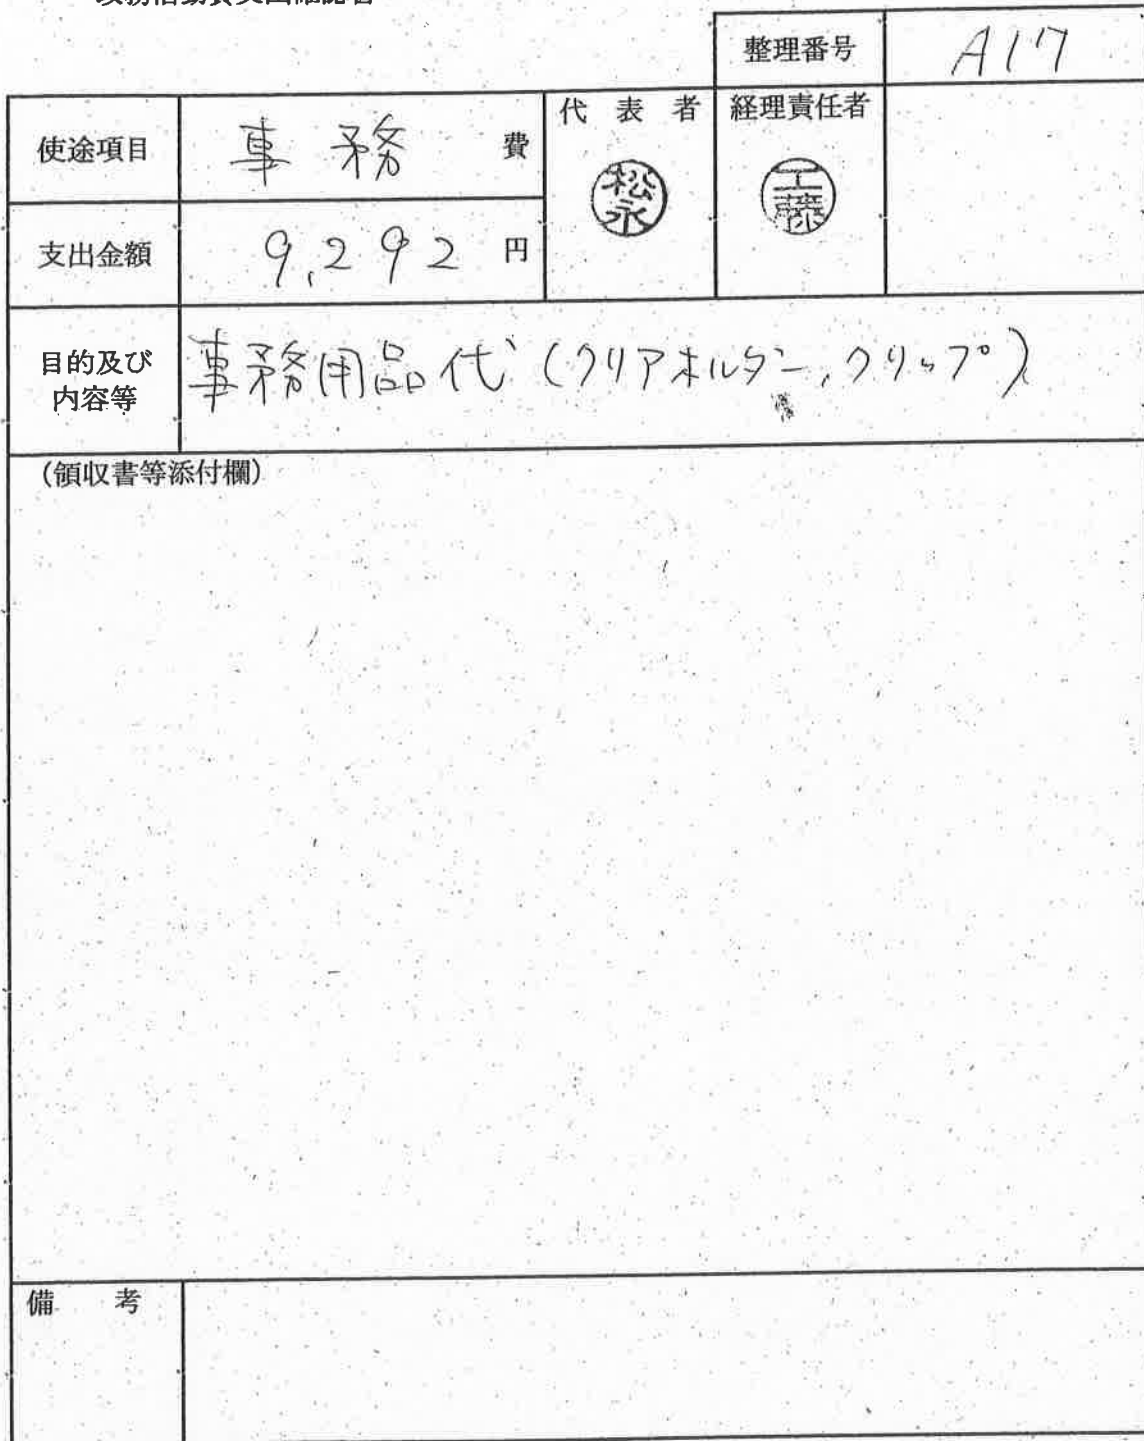 整理番号 A17
使途項目 事務 費 代表者 経理責任者
松永 工藤
支出金額 9,292 円
目的及び内容等 事務用品代(クリアホルダー,クリップ)
(領収書等添付欄)
備考